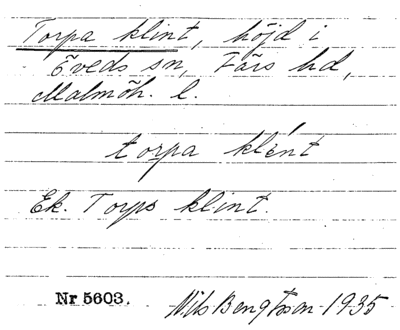 Torpa klint, höjd i
Öveds sn, Färs hd,
Malmöh. l.
torpa klént
Ek. Torps klint.
Nr 5603. Nils Bengtsson 1935